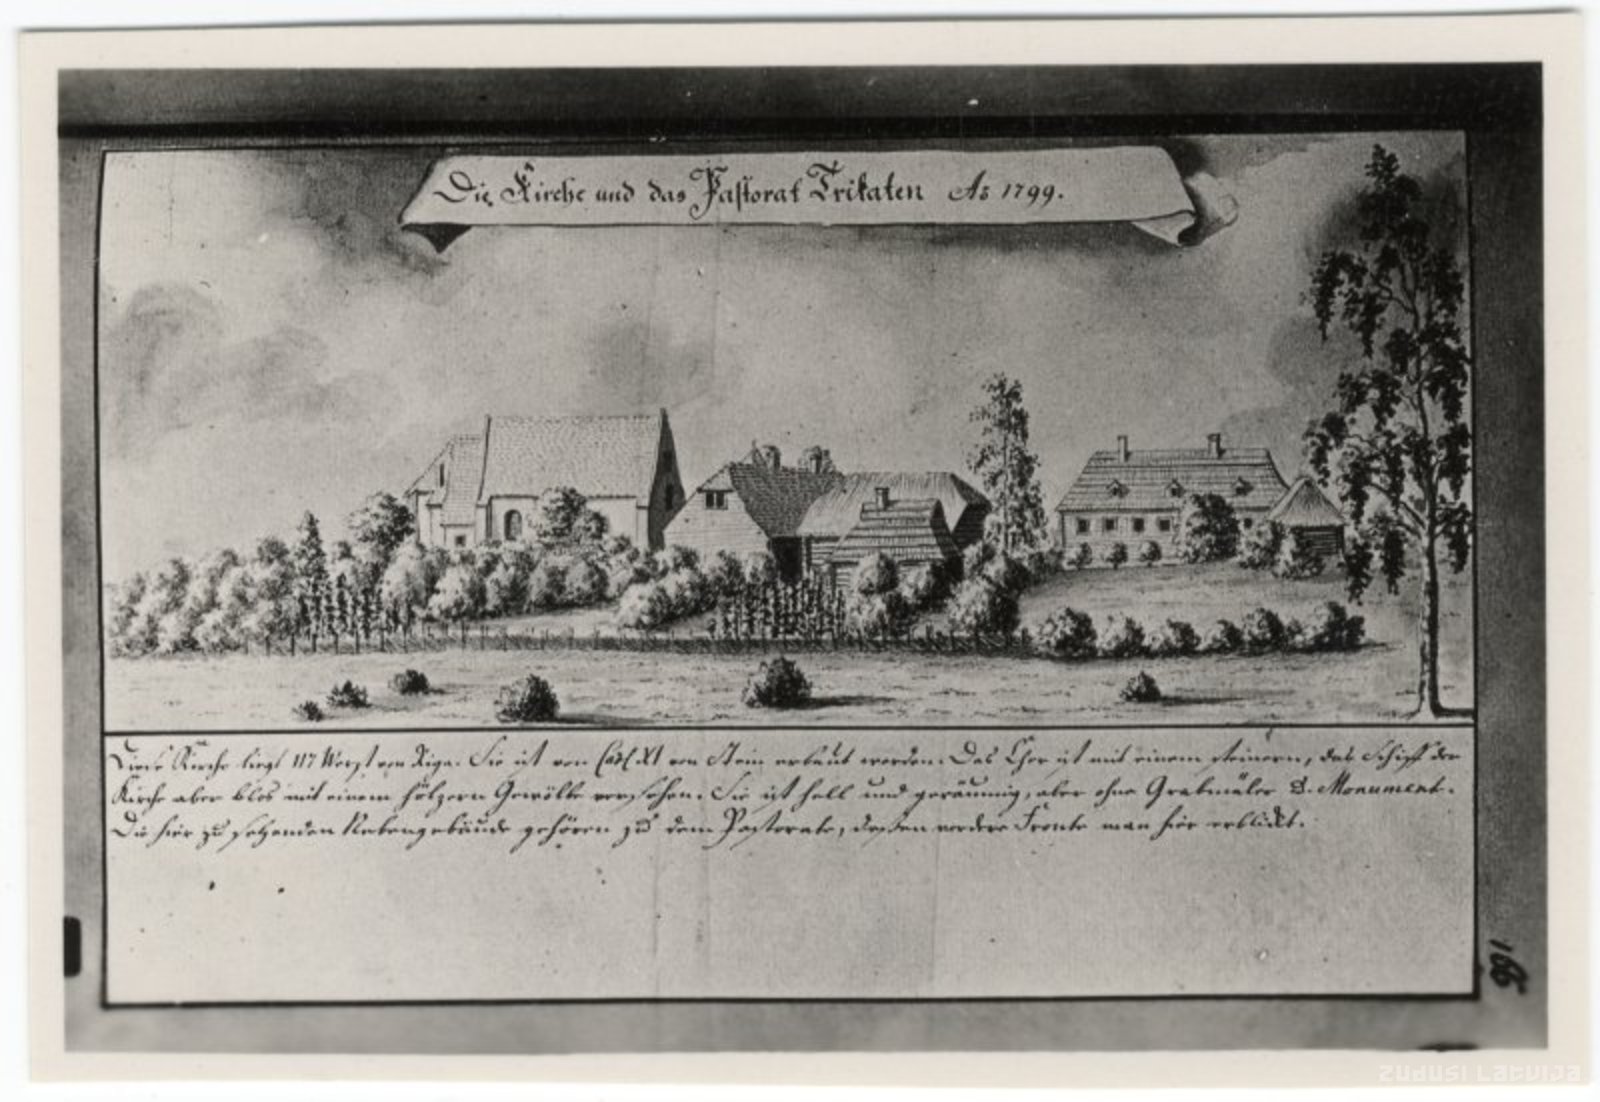 Die Kirche und das Pastorat Trikaten Ao 1799.
Diese Kirche liegt 117 Werst von Riga. Sie ist von Carl XI von Stein erbaut worden. Das Chor ist mit einem steinern, das Schiff der
Kirche aber blos mit einem hölzern Gewölbe versehen. Sie ist hell und geräumig, aber ohne Grabmäler & Monument.
Die hier zu sehenden Nebengebäude gehören zu dem Pastorate, deßen vordere Fronte man hier erblickt.
166
zudusi Latvija